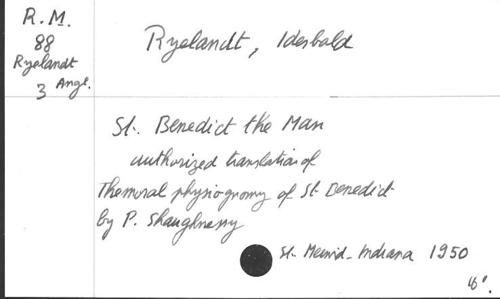 R.M.
88
Ryelandt
3 Angl.
Ryelandt, Idesbald
St. Benedict the Man
authorized translation of
The moral physiognomy of St Benedict
by P. Shaughnessy
St. Meinrad - Indiana 1950
16°.